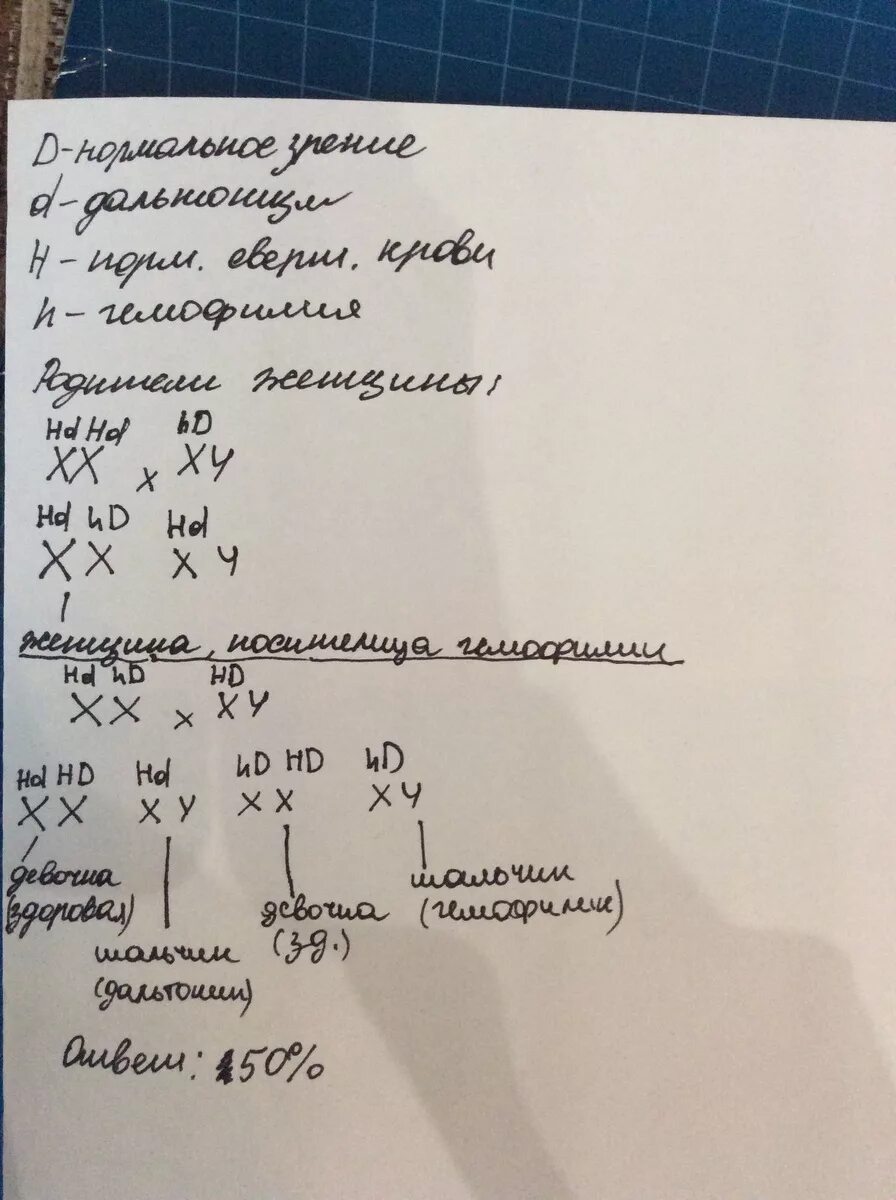 D-нормальное зрение
d-дальтонизм
H - норм. сверт. крови
h - гемофилия
Родители женщины:
Hd Hd hD
XX x XY
Hd hD Hd
X X X Y
женщина, носителица гемофилии
Hd hD HD
XX x XY
Hd HD Hd hD HD hD
X X X Y X X X Y
девочка мальчик
(здоровая) девочка (гемофилик)
мальчик (зд.)
(дальтоник)
Ответ: 50%